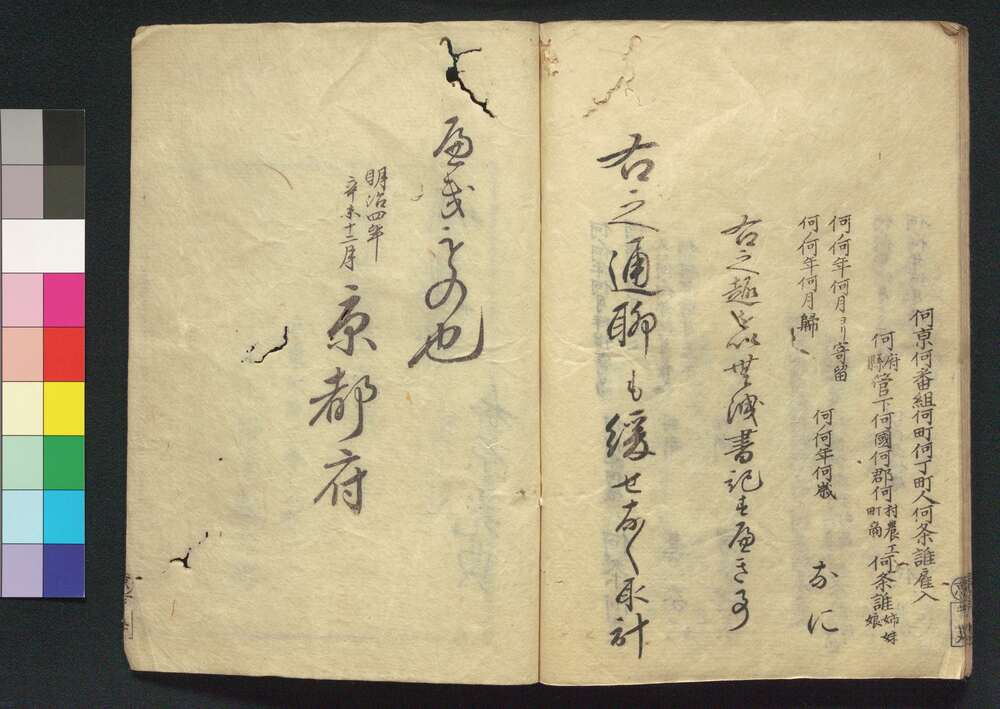 何京何番組何町何丁町人何条誰雇入
何府縣管下何國何郡何村町農工商何条誰姉妹娘
何何年何月ヨリ寄留
何何年何月歸
何何年何歳
なに
右之趣を以無洩書記すへき事
右之通聊も緩せなく取計
へき
もの也
明治四年
辛未十二月
京都府